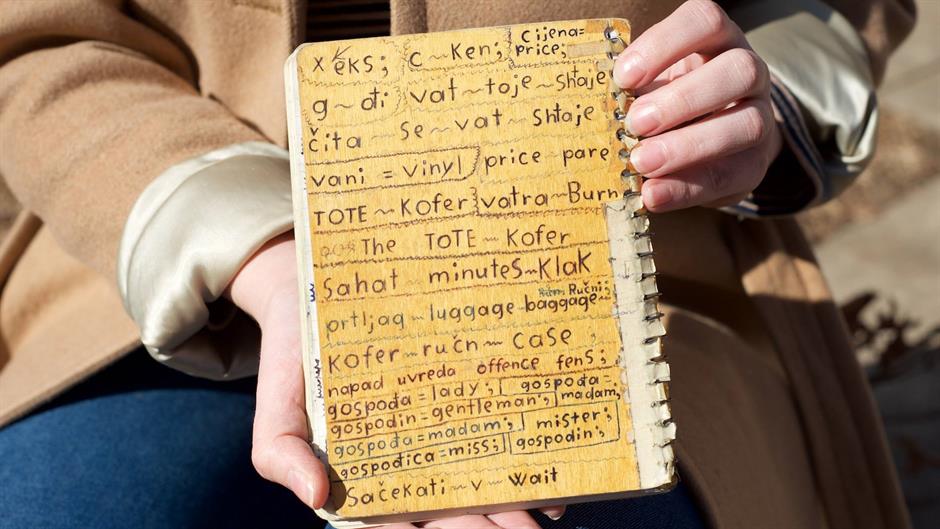 x eks; C ~ Ken; Cijena=
price;
g ~ đi vat ~ toje ~ shtaje
čita se ~ vat ~ shtaje
vani = vinyl price pare
TOTE ~ Kofer vatra ~ Burn
The TOTE ~ Kofer
Sahat minutes ~ Klak
Ručni;
prtljag ~ luggage baggage ~
Kofer ~ ručn ~ case;
napad uvreda offence fens;
gospođa = lady; gospođa = madam;
gospodin = gentleman; mister;
gospođa = madam; gospodin;
gospođica = miss;
Sačekati ~ v ~ wait